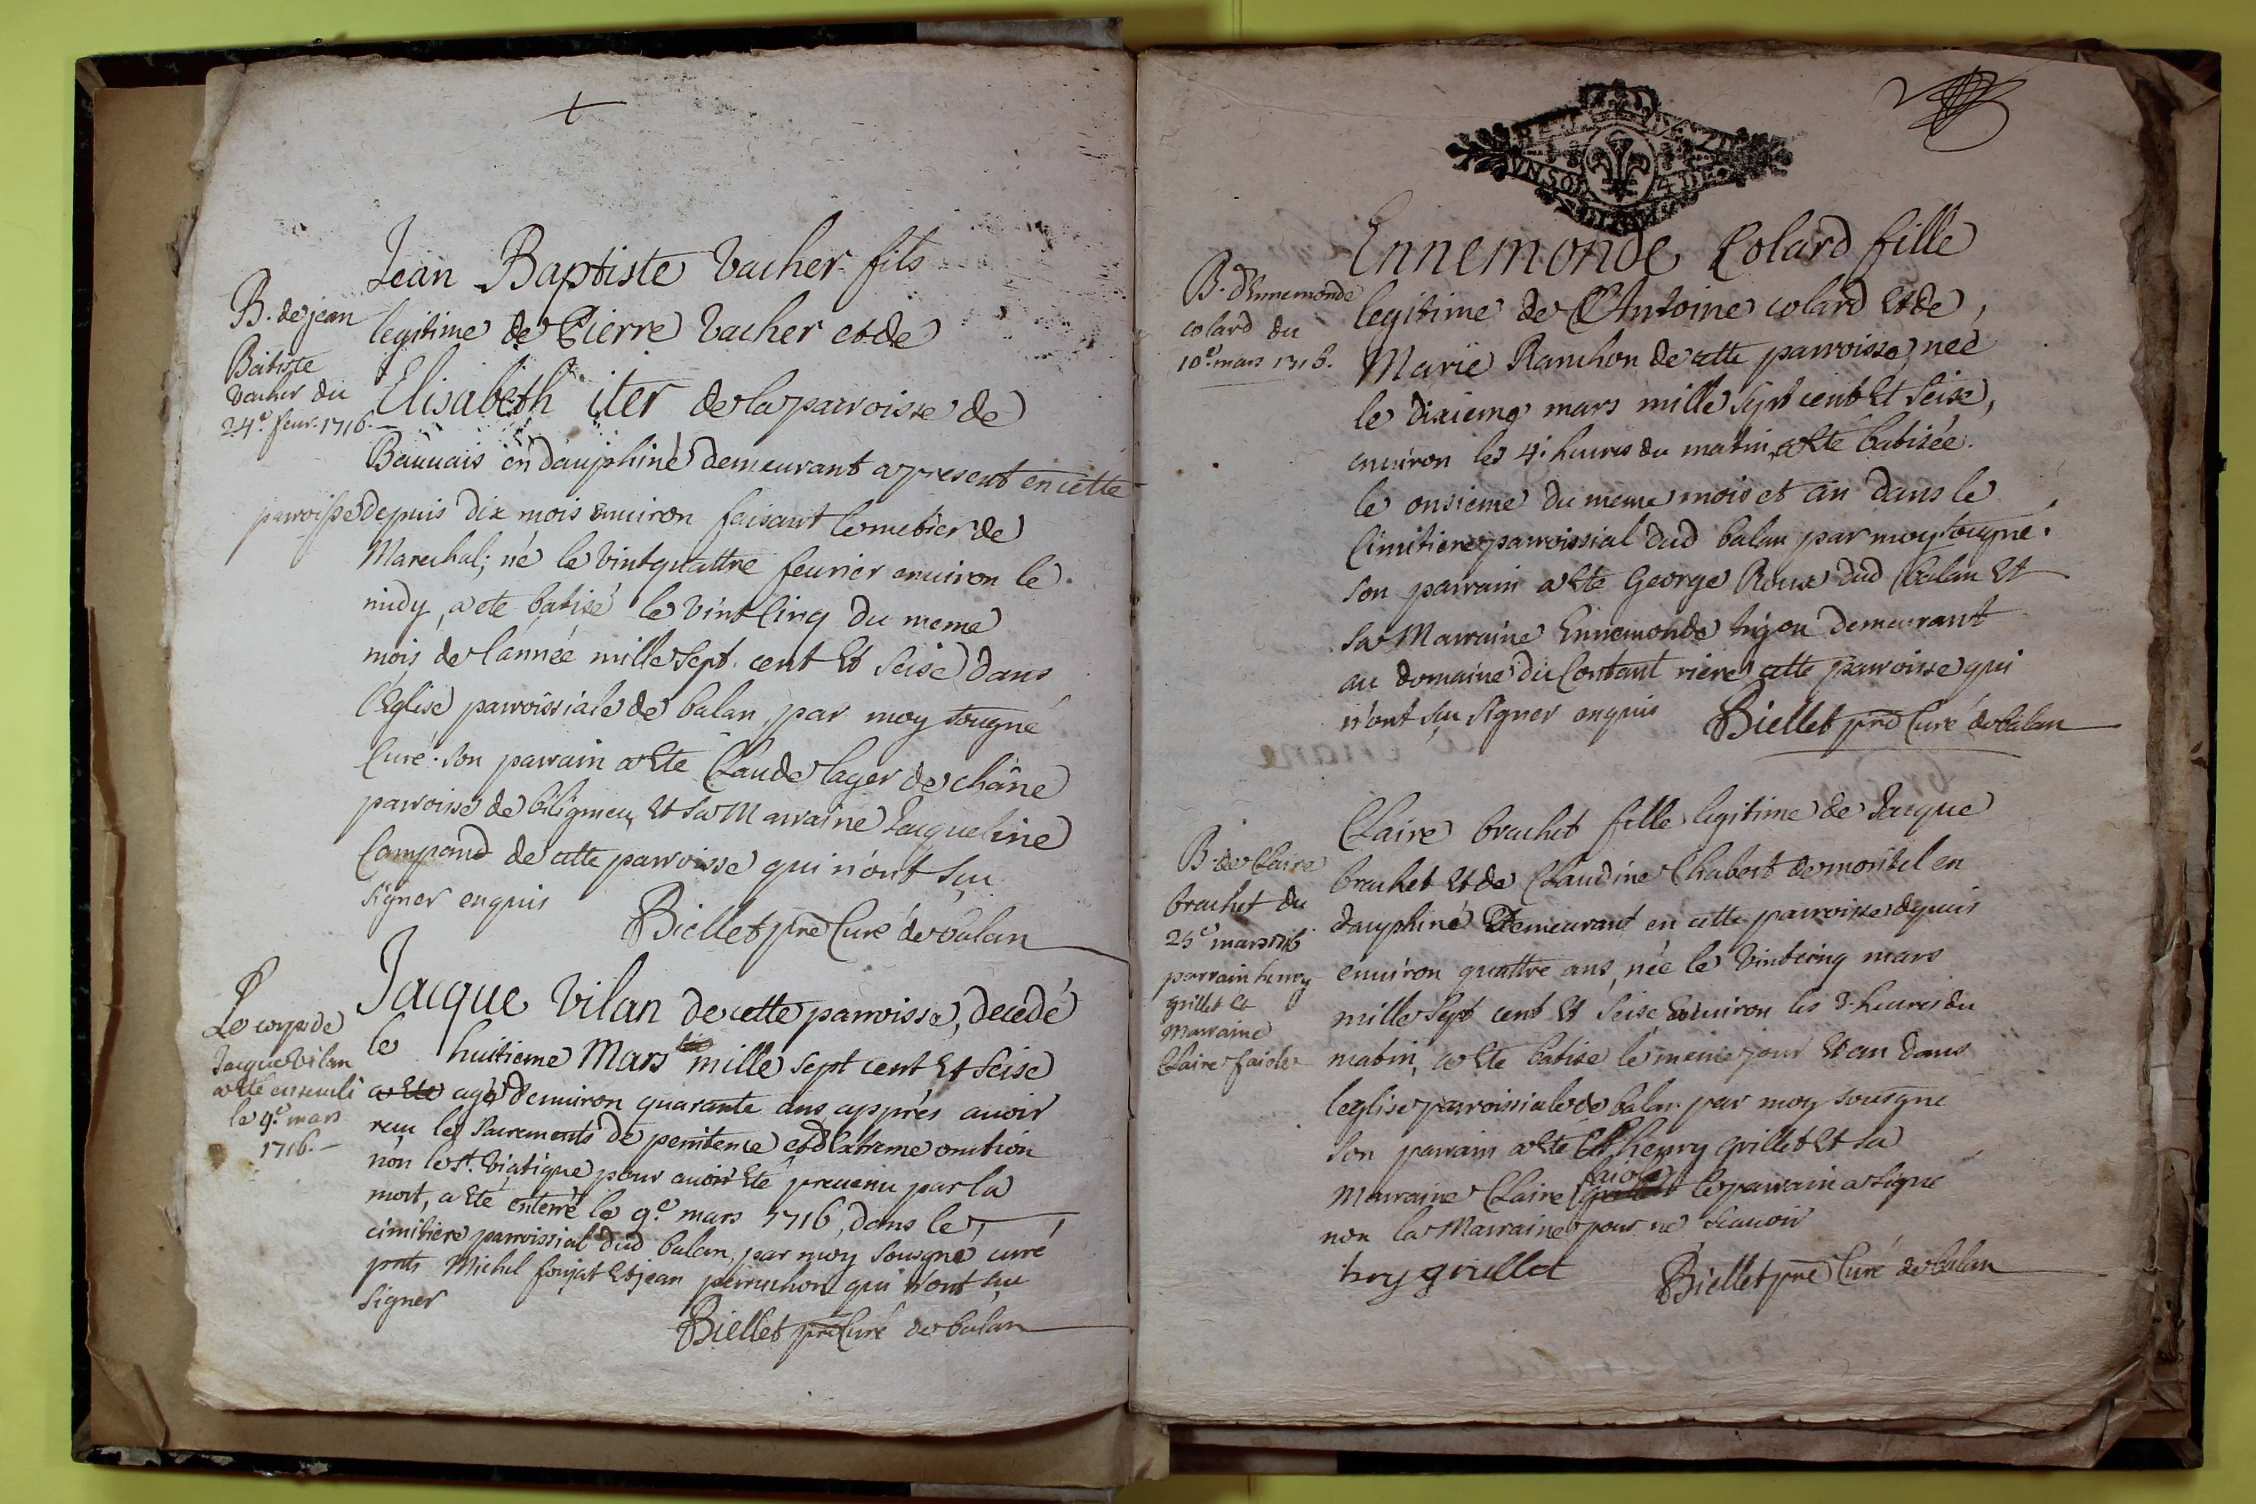 Jean Baptiste Vacher fils
legitime de Pierre Vacher et de
Elisabeth iter de la parroisse de
Bauuais en dauphiné demeurant a present en cette
parroisse depuis dix mois enuiron faisant le metier de
Marechal; né le vintquattre feurier enuiron le
midy, a ete batisé le vint cinq du meme
mois de l'année mille sept cent et seise dans
l'eglise parroissiale de balan par moy sougné
Curé. son parrain a ete Claude lager de châne
parroisse de biligmeu et sa Marraine Jacqueline
Campand de cette parroisse qui n'ont sçu
signer enquis
Biellet pre Curé de balan
B. de jean
Batiste
vacher du
24e feur. 1716.
Jacque Vilan de cette parroisse, decedé
le huitieme Mars mille sept cent et seise
a ete agé d'enuiron quarante ans apprés auoir
receu les sacrements de penitence et d'extreme onction
non le st. viatique pour auoir eté preuenu par la
mort, a eté enterré le 9e mars 1716, dans le
cimitiere parroissial dud balan, par moy sousgné curé
pnts Michel foujat et jean perruchon qui n'ont sçu
signer
Biellet pre Curé de balan
Le corps de
Jacque Vilan
a ete enseueli
le 9e mars
1716.
Ennemonde Colard fille
legitime de Antoine colard et de
Marie Ranchon de cette parroisse, neé
le dixieme mars mille sept cent et seise,
enuiron les 4. heures du matin, a ete batisée
le onsieme du meme mois et an dans le
Cimitiere parroissial dud balan par moy sougné.
son parrain a ete George Roux dud balan et
sa Marraine Ennemonde demeurant
au domaine du Contant riere cette parroisse qui
n'ont sçu signer enquis Biellet pre Curé de balan
B. d'Ennemonde
colard du
10e mars 1716.
Claire brachet fille legitime de Jacque
brachet et de Claudine Chabert de montel en
dauphiné Demeurant en cette parroisse depuis
enuiron quattre ans, née le vintcinq mars
mille sept cent et seise enuiron les 3. heures du
matin, a ete batise le meme jour et an dans
l'eglise parroissiale de balan par moy sousgne
son parrain a ete henry grillet et sa
faiole
Marraine Claire le parrain a signé
non la Marraine pour ne sçauoir
hry grillet Biellet pre Curé de balan
B. de Claire
brachet du
25e mars 1716
parrain henry
grillet et
marraine
Claire faiole